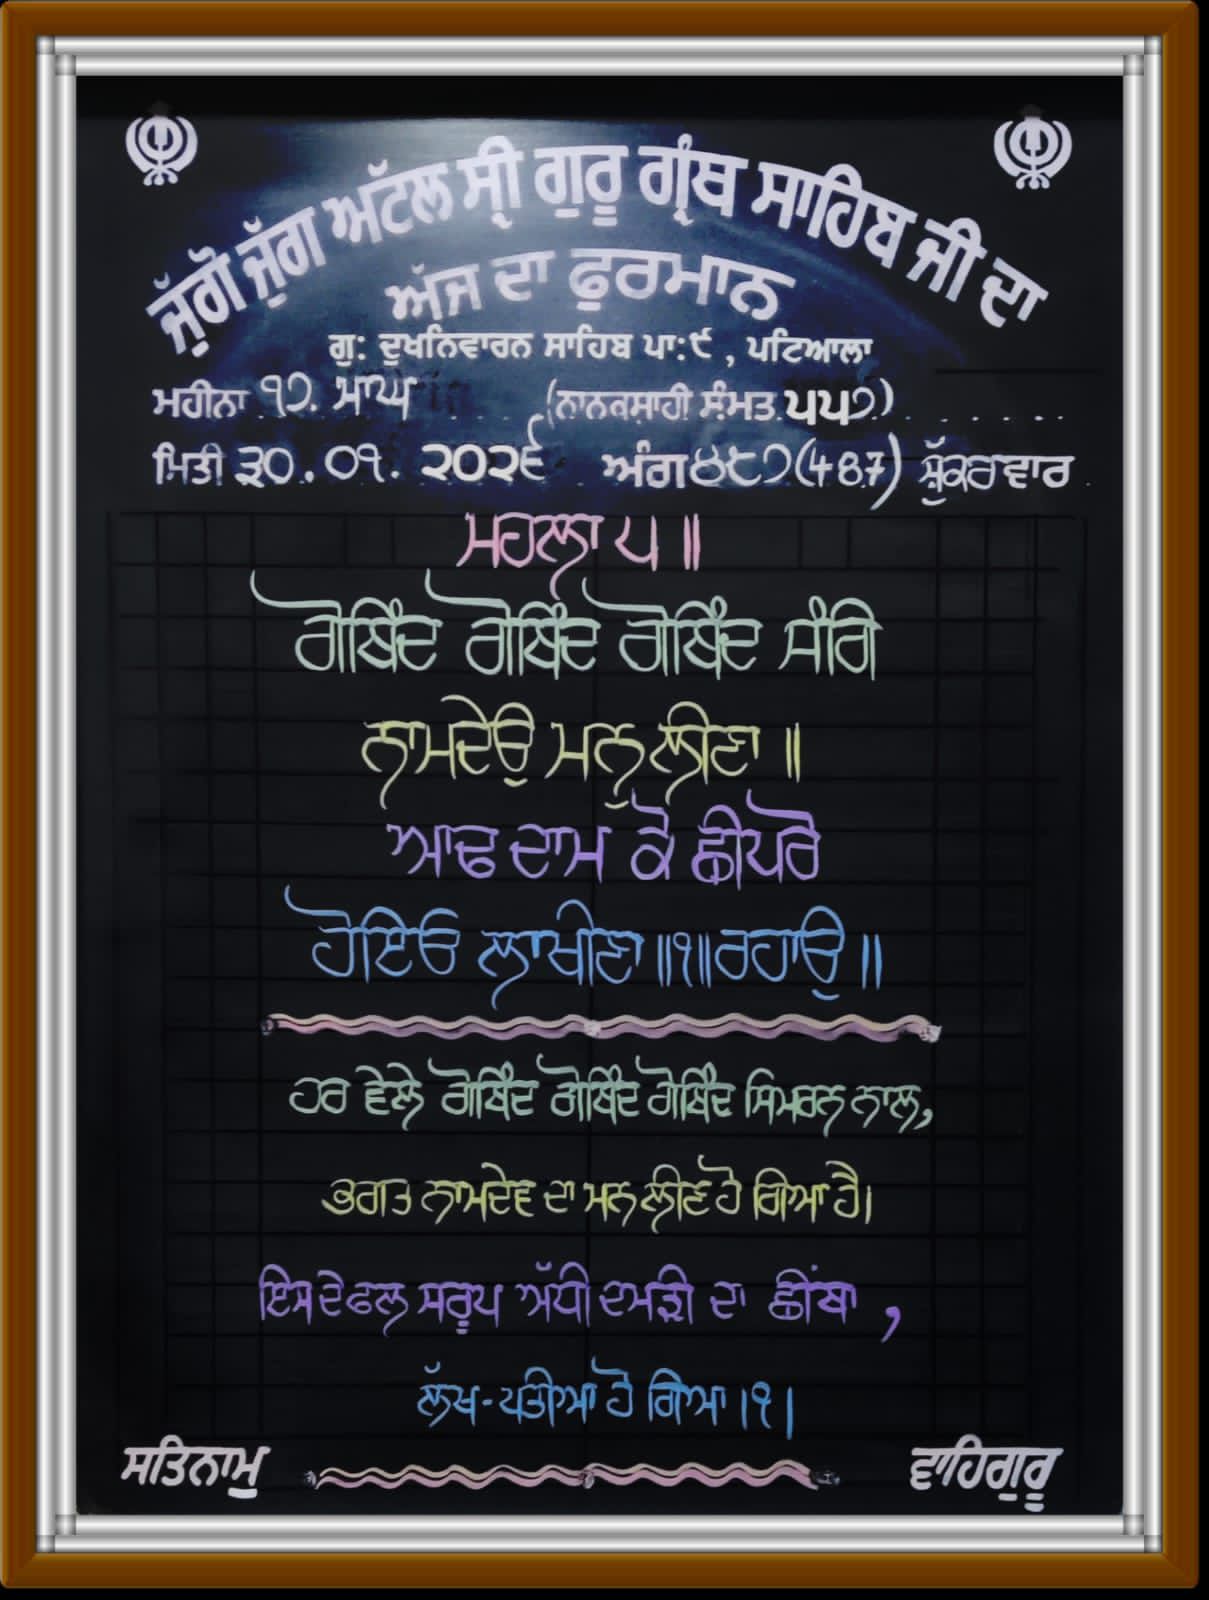 ਜੁੱਗੋ ਜੁੱਗ ਅਟੱਲ ਸ੍ਰੀ ਗੁਰੂ ਗ੍ਰੰਥ ਸਾਹਿਬ ਜੀ ਦਾ
ਅੱਜ ਦਾ ਫੁਰਮਾਨ
ਗੁ: ਦੁਖਨਿਵਾਰਨ ਸਾਹਿਬ ਪਾ:੯ , ਪਟਿਆਲਾ
ਮਹੀਨਾ ੧੭. ਮਾਘ (ਨਾਨਕਸ਼ਾਹੀ ਸੰਮਤ ੫੫੭)
ਮਿਤੀ ੩੦.੦੧.੨੦੨੬ ਅੰਗ ੪੮੭ (487) ਸ਼ੁੱਕਰਵਾਰ
ਮਹਲਾ ੫ ॥
ਗੋਬਿੰਦ ਗੋਬਿੰਦ ਗੋਬਿੰਦ ਸੰਗਿ
ਨਾਮਦੇਉ ਮਨੁ ਲੀਣਾ ॥
ਆਢ ਦਾਮ ਕੋ ਛੀਪਰੋ
ਹੋਇਓ ਲਾਖੀਣਾ ॥੧॥ ਰਹਾਉ ॥
ਹਰ ਵੇਲੇ ਗੋਬਿੰਦ ਗੋਬਿੰਦ ਗੋਬਿੰਦ ਸਿਮਰਨ ਨਾਲ,
ਭਗਤ ਨਾਮਦੇਵ ਦਾ ਮਨ ਲੀਣ ਹੋ ਗਿਆ ਹੈ।
ਇਸ ਦੇ ਫਲ ਸਰੂਪ ਅੱਧੀ ਦਮੜੀ ਦਾ ਛੀਂਬਾ ,
ਲੱਖ-ਪਤੀਆ ਹੋ ਗਿਆ ।੧।
ਸਤਿਨਾਮੁ ਵਾਹਿਗੁਰੂ